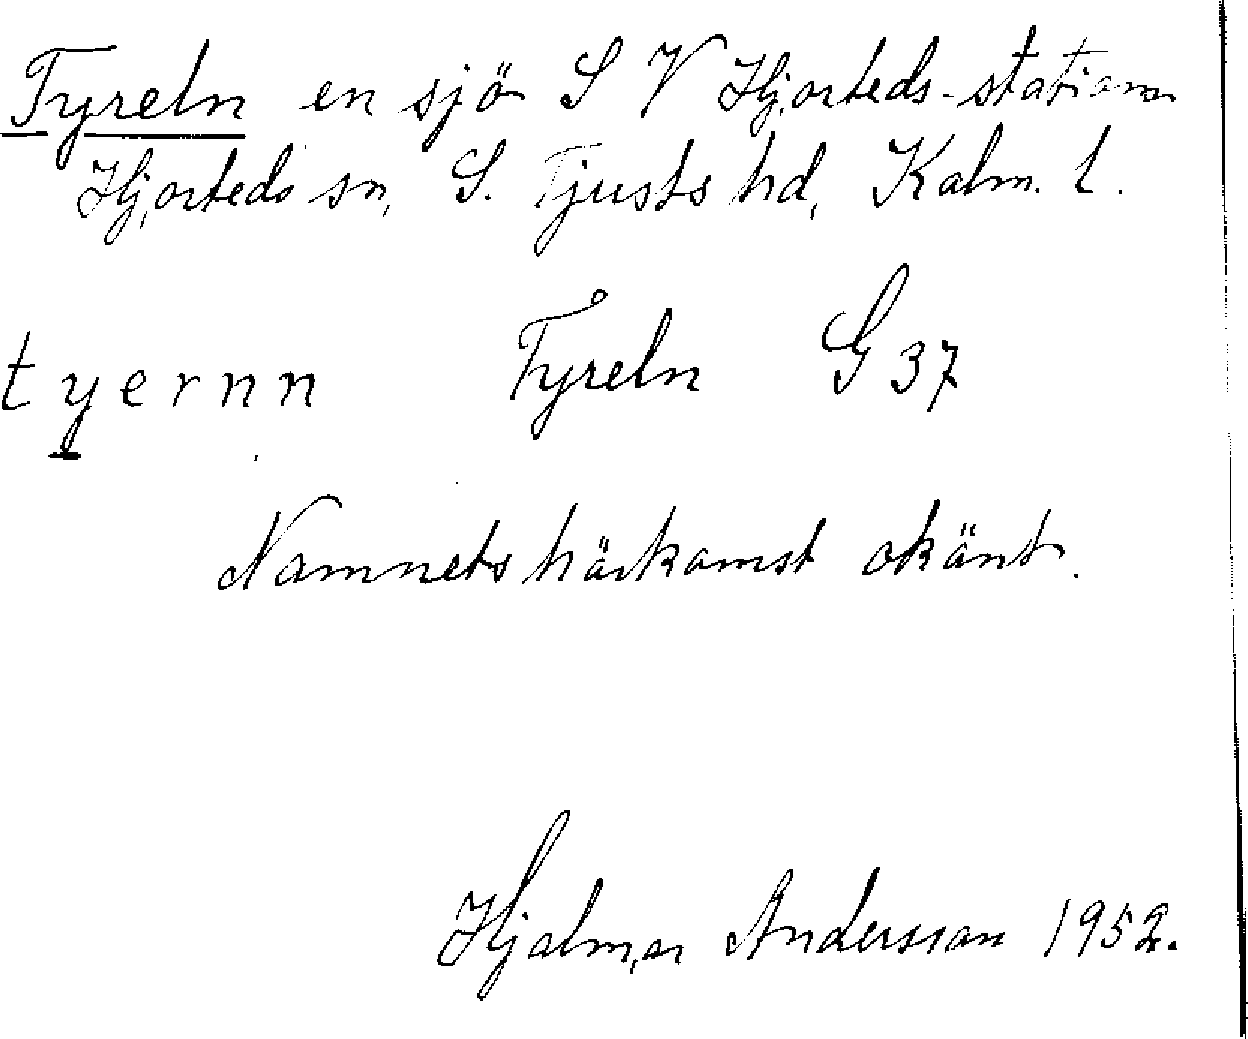 Tyreln en sjö S V Hjorteds-station
Hjorteds sn, S. Tjusts hd, Kalm. l.
tyernn Tyreln G 37
Namnets härkomst okänt.
Hjalmar Andersson 1952.